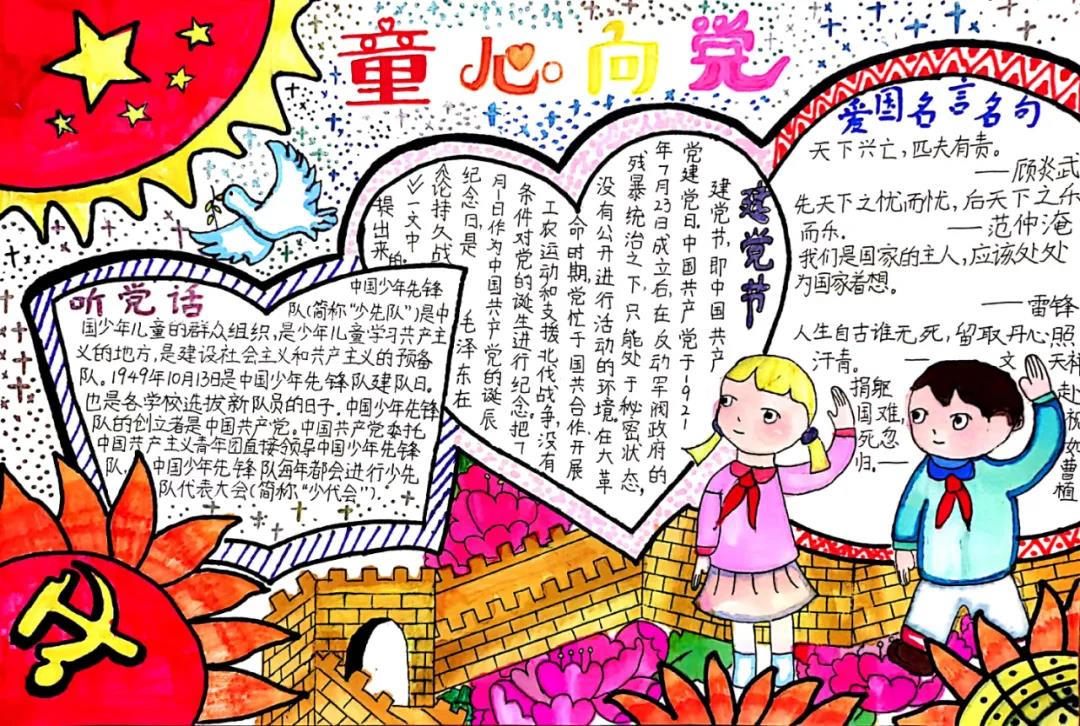 童心向党
听党话
中国少年先锋
队(简称“少先队”)是中
国少年儿童的群众组织,是少年儿童学习共产主
义的地方,是建设社会主义和共产主义的预备
队。1949年10月13日是中国少年先锋队建队日。
也是各学校选拔新队员的日子.中国少年先锋
队的创立者是中国共产党。中国共产党委托
中国共产主义青年团直接领导中国少年先锋
队.中国少年先锋队每年都会进行少先
队代表大会(简称“少代会”).
建党节
建党节,即中国共产
党建党日.中国共产党于1921
年7月23日成立后,在反动军阀政府的
残暴统治之下,只能处于秘密状态,
没有公开进行活动的环境.在大革
命时期,党忙于国共合作开展
工农运动和支援北伐战争,没有
条件对党的诞生进行纪念.把7
月1日作为中国共产党的诞辰
纪念日是毛泽东在
《论持久战
》一文中
提出来的
爱国名言名句
天下兴亡,匹夫有责。
——顾炎武
先天下之忧而忧,后天下之乐
而乐. ——范仲淹
我们是国家的主人,应该处处
为国家着想。
——雷锋
人生自古谁无死,留取丹心照
汗青. —文天祥
捐躯赴
国难,视
死忽如
归.—曹植